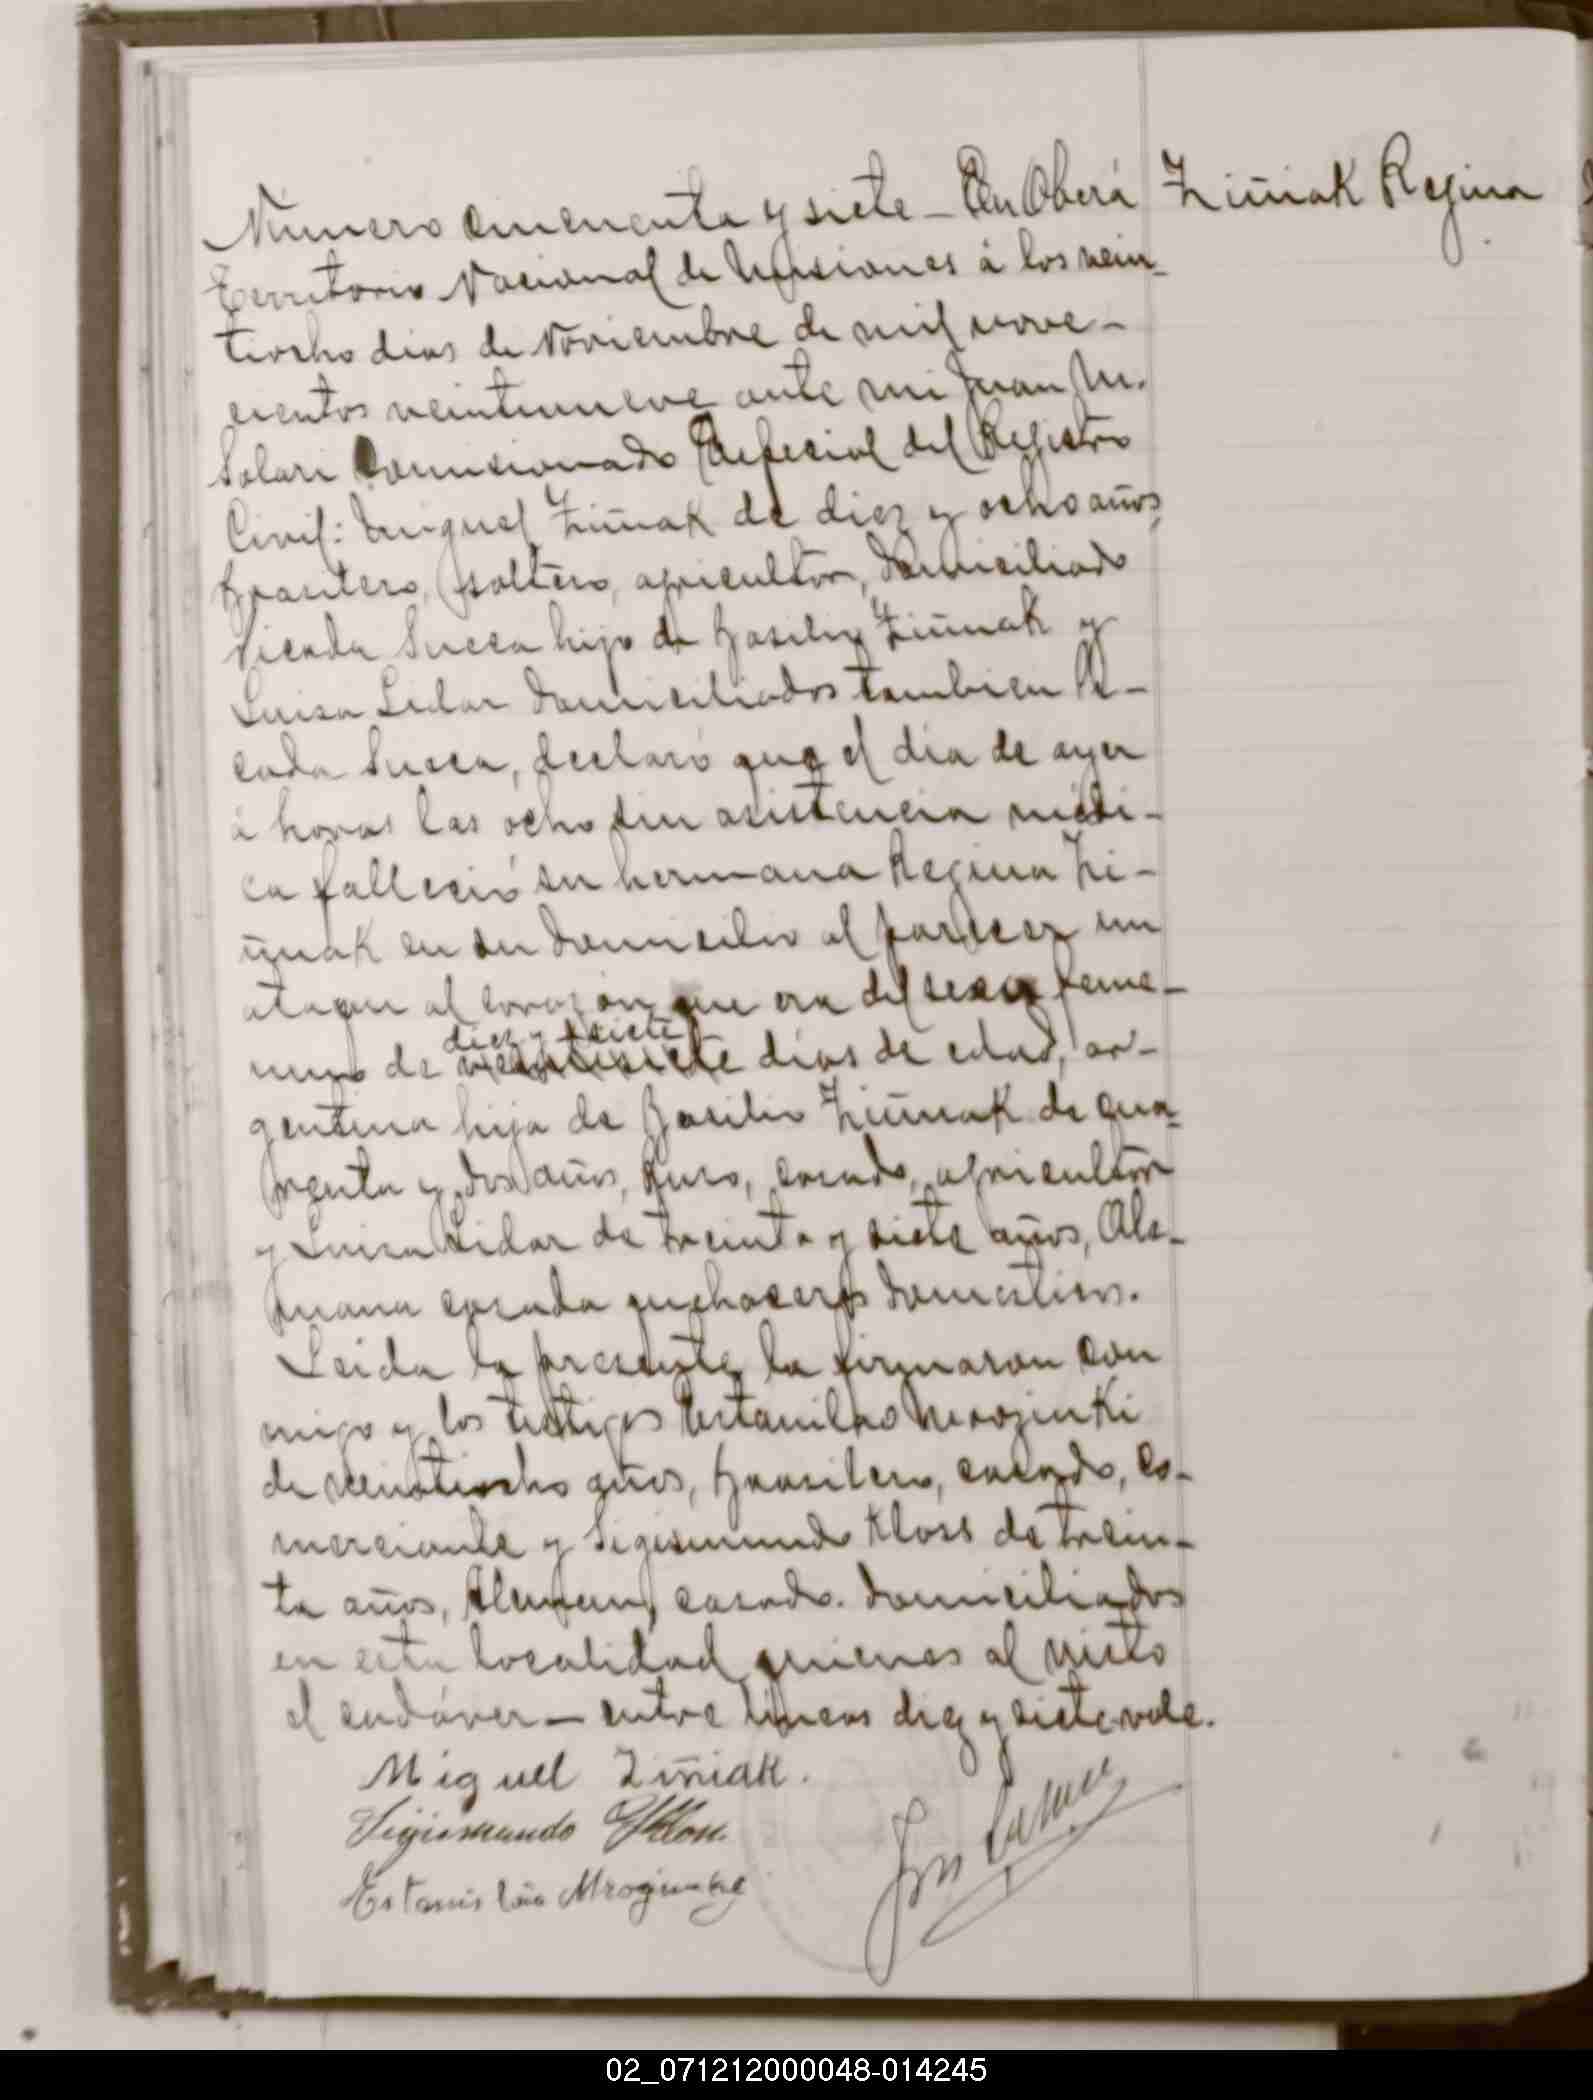 Número cincuenta y siete – En Oberá
Ziñiak Regina
Territorio Nacional de Misiones á los vein-
tiocho dias de Noviembre de mil nove-
cientos veintinueve ante mi Juan M.
Solari Comisionado Especial del Registro
Civil: Miguel Ziñiak de diez y ocho años,
brasilero, soltero, agricultor, domiciliado
Picada Sueca hijo de Basilio Ziñiak y
Luisa Lidar domiciliados tambien Pi-
cada Sueca, declaró que el dia de ayer
á horas las ocho sin asistencia médi-
ca falleció su hermana Regina Zi-
ñiak en su domicilio al parecer un
ataque al corazón que era del sexo feme-
diez y siete
nino de veintisiete días de edad, ar-
gentina hija de Basilio Ziñiak de cua-
renta y dos años, Ruso, casado, agricultor
y Luisa Lidar de treinta y siete años, Ale-
mana casada quehaceres domésticos.
Leida la presente la firmaron con
migo y los testigos Estanilao Mrozinki
de veintiocho años, brasilero, casado, co-
merciante y Sigismundo Kloss de trein-
ta años, Aleman, casado. domiciliados
en esta localidad quienes al visto
el cadáver – entre lineas diez y siete vale.
Miguel Ziñiak.
Sigismundo Kloss
Estanislao
02_071212000048-014245